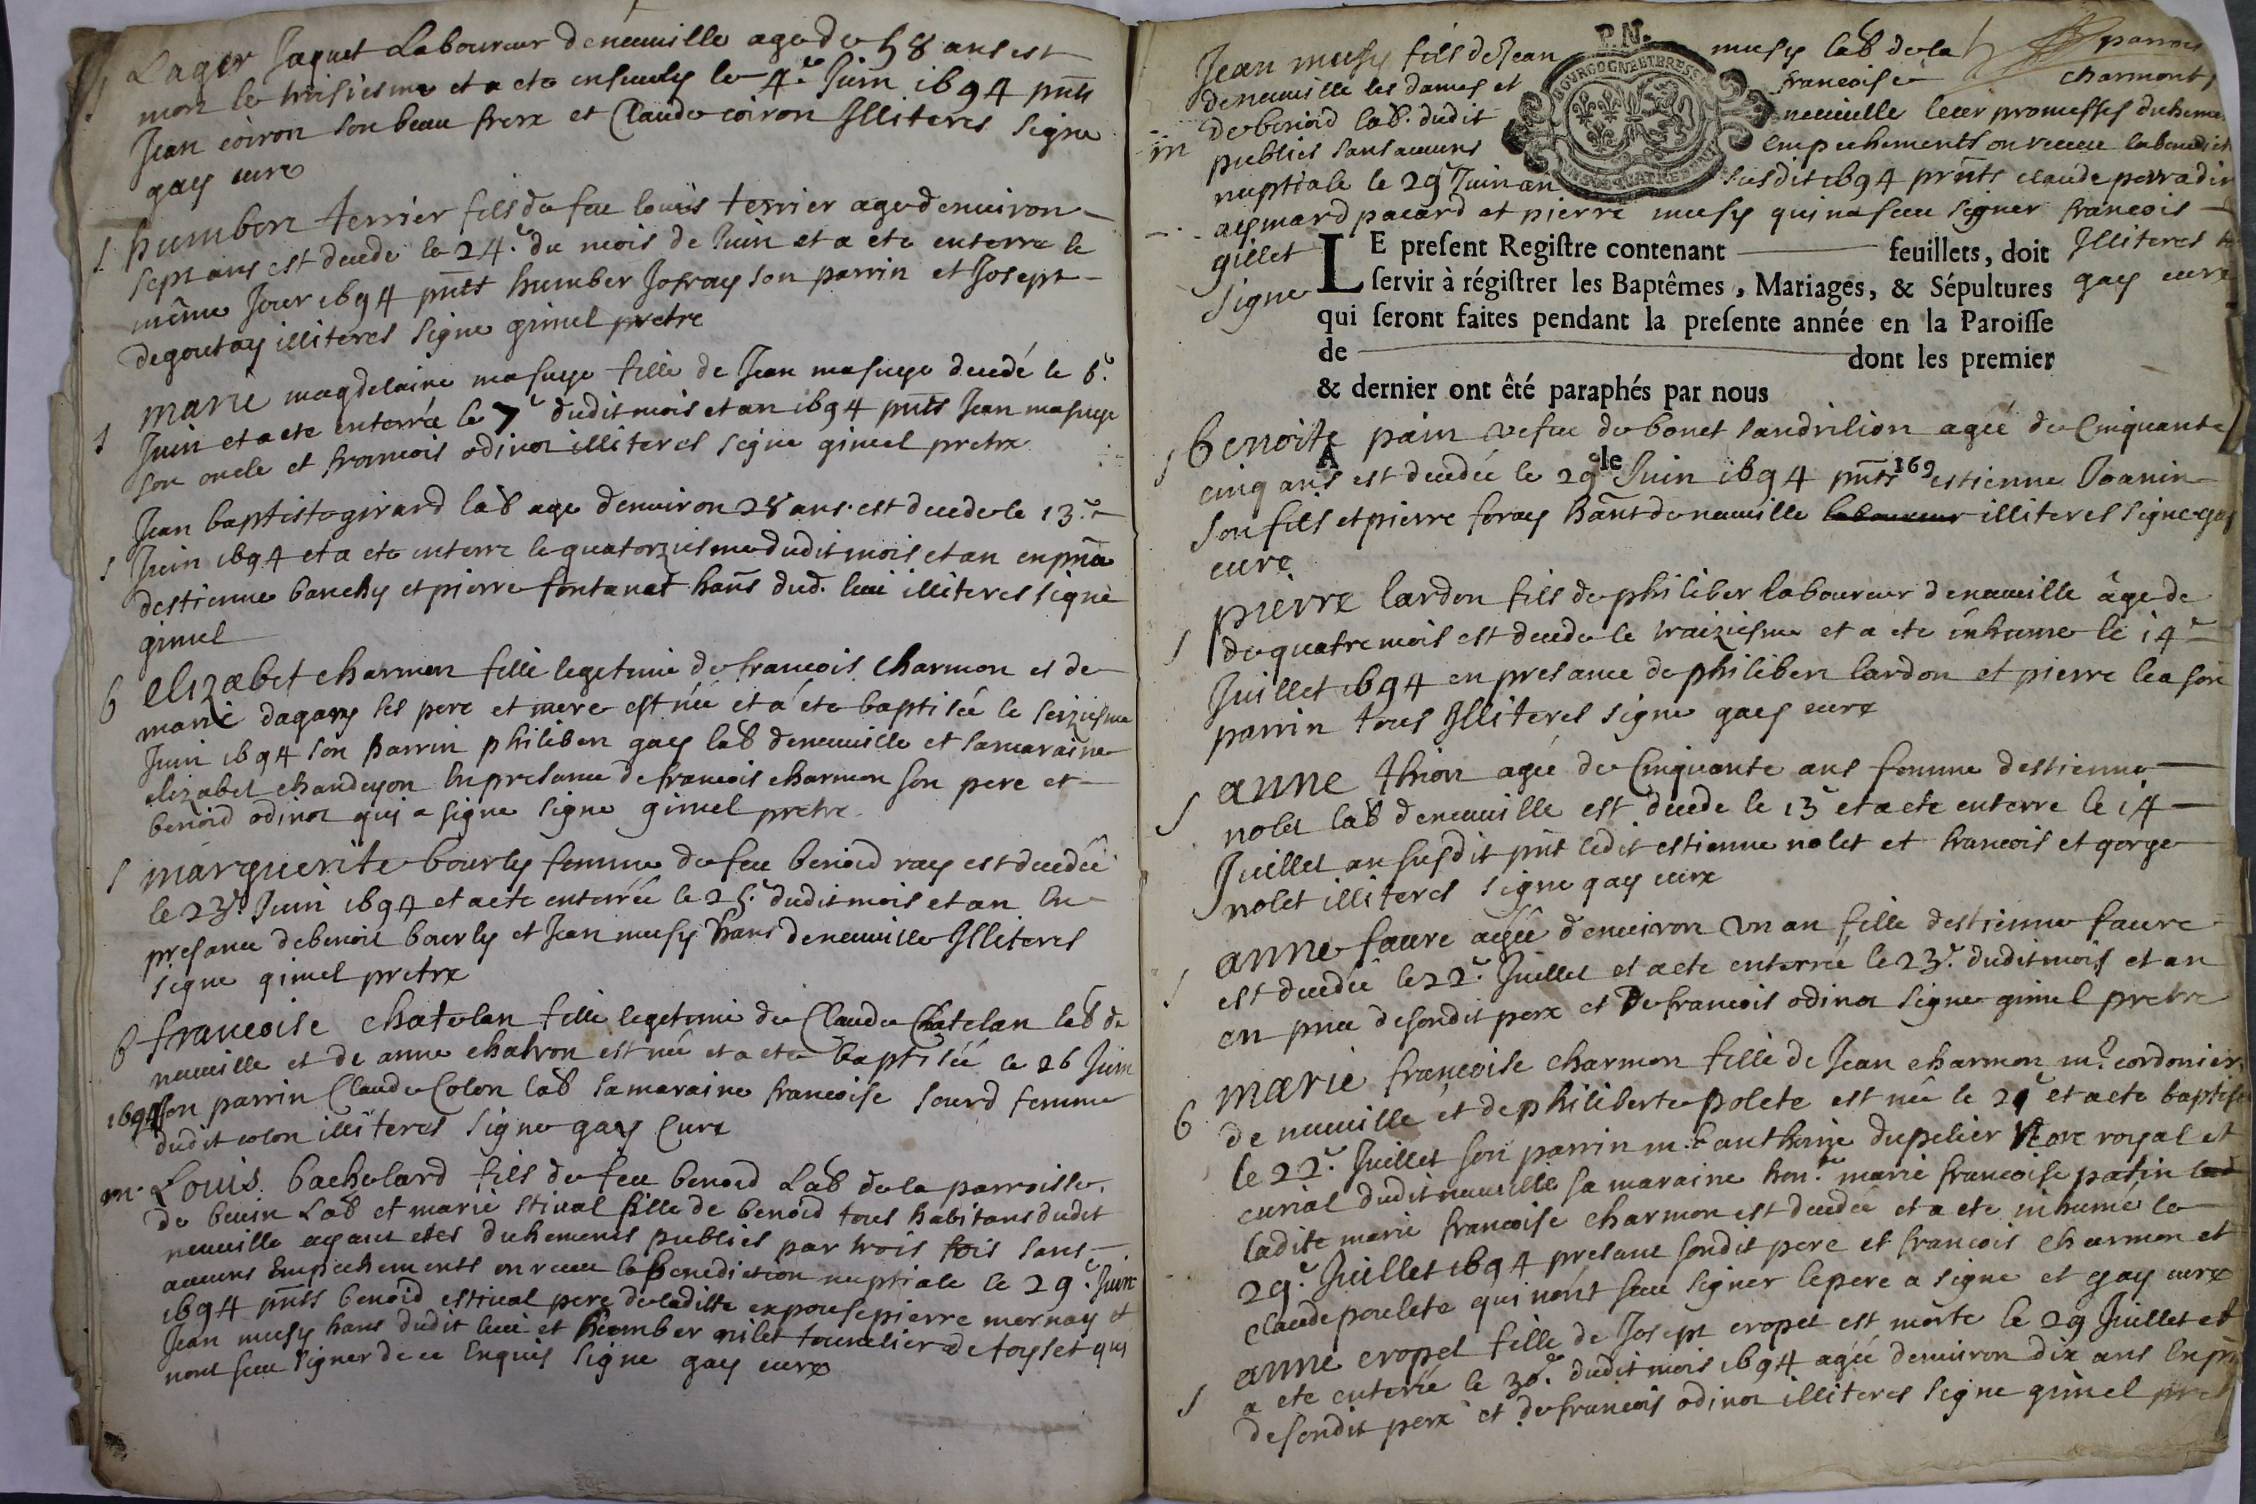 Lager Jaquet Laboureur deneuuille age de 58 ans est
mort le troisiesme et a ete enseuely le 4e Juin 1694 pnts
Jean coiron son beau frere et Claude coiron Jlliteres signe
gay cure
s humbert terrier fils de feu louis terrier age denuiron
sept ans est decede le 24e du mois de Juin et a ete enterre le
même Jour 1694 pnts humber Jofray son parrin et Josept
degoutay illiteres signe gimel pretre
marie magdelaine masuye fille de Jean masuye decedé le 6e
s Juin et a ete enterrée le 7e dudit mois et an 1694 pnts Jean masuye
son oncle et francois odinot illiteres signe gimel pretre
Jean baptiste girard lab age denuiron 28 ans est decede le 13e
s Juin 1694 et a ete enterre le quatorziesme dudit mois et an en pnce
destienne banchy et pierre fontanet hans dud. lieu illiteres signe
gimel
b elizabet charmon fille legetime de francois charmon et de
marie dagany ses pere et mere est née et a ete baptisée le seiziesme
Juin 1694 son parrin philibert gay lab deneuuille et samaraine
elizabet chanduyon en presance de francois charmon son pere et
benoid odinot qui a signe signe gimel pretre
s marguerite bourly femme de feu benoid ray est decedée
le 23e Juin 1694 et a ete enterrée le 25e dudit mois et an en
presance debenoit bourly et Jean musy hans deneuuille Jlliteres
signe gimel pretre
b francoise chatelan fille legetime de Claude Chatelan lab de
neuuille et de anne chatron est née et a ete baptisée le 26 Juin
1694 son parrin Claude Colon lab samaraine francoise sourd femme
dudit colon illiteres signe gay Cure
m Louis bachelard fils de feu benoid Lab de la parroisse
de lab et marie stiual fille de benoid tous habitans dudit
neuuille ayant etes duhement publies par trois fois sans
aucuns Empechements on receu la benediction nuptiale le 29e Juin
1694 pnts benoid estiual pere de laditte expouse pierre mornay et
Jean musy hans dudit lieu et humber nilet tounelier de toysset qui
nont sceu signer de ce Enquis signe gay cure
P.N.
BOURGOGNE ET BRESSE
Jean musy fils de Jean musy lab de la parrois
deneuuille les dames et francoise charmont
de benoid lab. dudit neuuille leur promesses duheme
m publies sans aucuns empechements on receu la benedict
nuptiale le 29e Juin an susdit 1694 prnts claude perradin
aymard pacard et pierre musy qui na sceu signer francois
gillet Jlliteres
signe gay cure
LE present Registre contenant feuillets, doit
servir à régistrer les Baptêmes, Mariages, & Sépultures
qui seront faites pendant la presente année en la Paroisse
de dont les premier
& dernier ont été paraphés par nous
A le 169
s benoite pain vefue de bonet sandrilion agée de Cinquante
cinq ans est decedée le 29e Juin 1694 pnts estienne Joanin
son fils et pierre foray hant de neuuille laboureur illiteres signe gay
cure
pierre lardon fils de philiber laboureur deneuuille âge de
s de quatre mois est decede le traiziesme et a ete inhume le 14e
Juillet 1694 en presance de philibert lardon et pierre lea son
parrin tous Jlliteres signe gay cure
anne thion agée de Cinquante ans femme destienne
s nolet lab deneuuille est decede le 13e et a ete enterre le 14
Juillet an susdit pnt ledit estienne nolet et francois et gorge
nolet illiteres signe gay cure
anne faure agée denuiron un an fille destienne faure
s est decedée le 22e Juillet et a ete enterrée le 23e dudit mois et an
en pnce desondit pere et de francois odinot signe gimel pretre
marie francoise charmon fille de Jean charmon me cordonier
b de neuuille et de philiberte polete est née le 21e et a ete baptise
le 22e Juillet son parrin me anthoine dupelier Nore royal et
curial dudit neuuille sa maraine hon. marie francoise patin
ladite marie francoise charmon est decedée et a ete inhumé le
29e Juillet 1694 presant sondit pere et francois charmon et
claude poulete qui n'ont sceu signer le pere a signe et gay cure
anne cropet fille de Josept cropet est morte le 29 Juillet et
s a ete enterrée le 30e dudit mois 1694 agée denuiron dix ans en pn
desondit pere et de francois odinot illiteres signe gimel pret